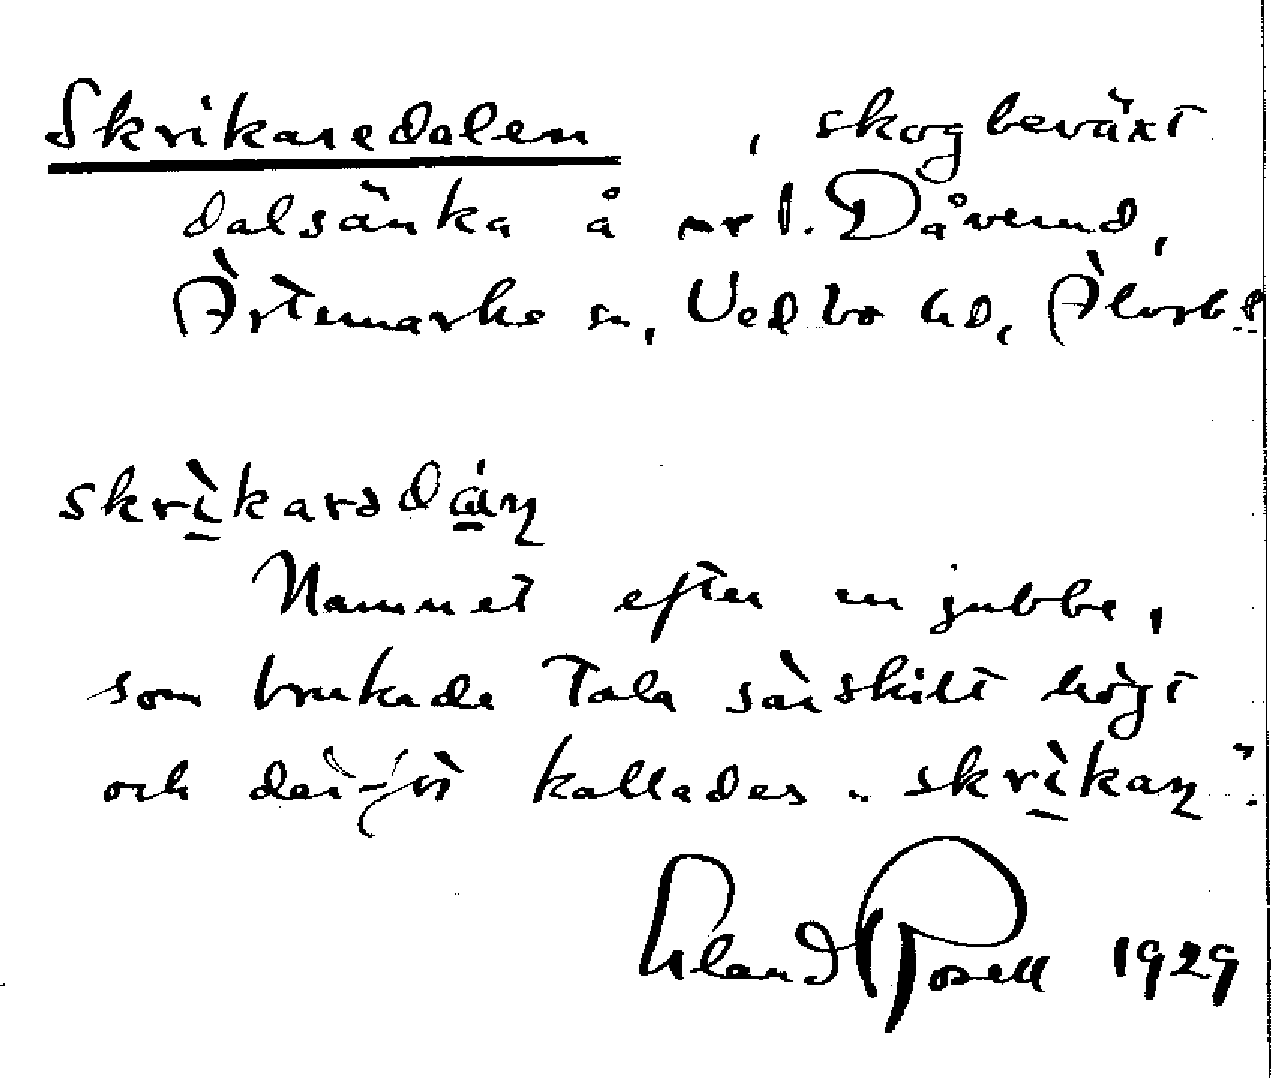 Skrikaredalen, skogbeväxt
dalsänka å nr 1. Dåverud,
Ärtemarks sn, Vedbo hd, Älvsb. l.
skrìkarsdáɳ
Namnet efter en gubbe,
som brukade tala särskilt högt
och därför kallades "skrìkaɳ".
Erland Rosell 1929